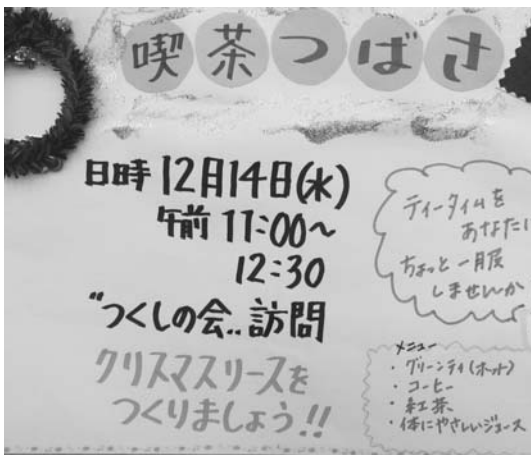 喫茶つばさ
日時 12月14日(水)
午前 11:00～
12:30
"つくしの会" 訪問
クリスマスリースを
つくりましょう!!
ティータイムを
あなたに
ちょっと一服
しませんか
メニュー
・グリーンティ(ホット)
・コーヒー
・紅茶
・体にやさしいジュース